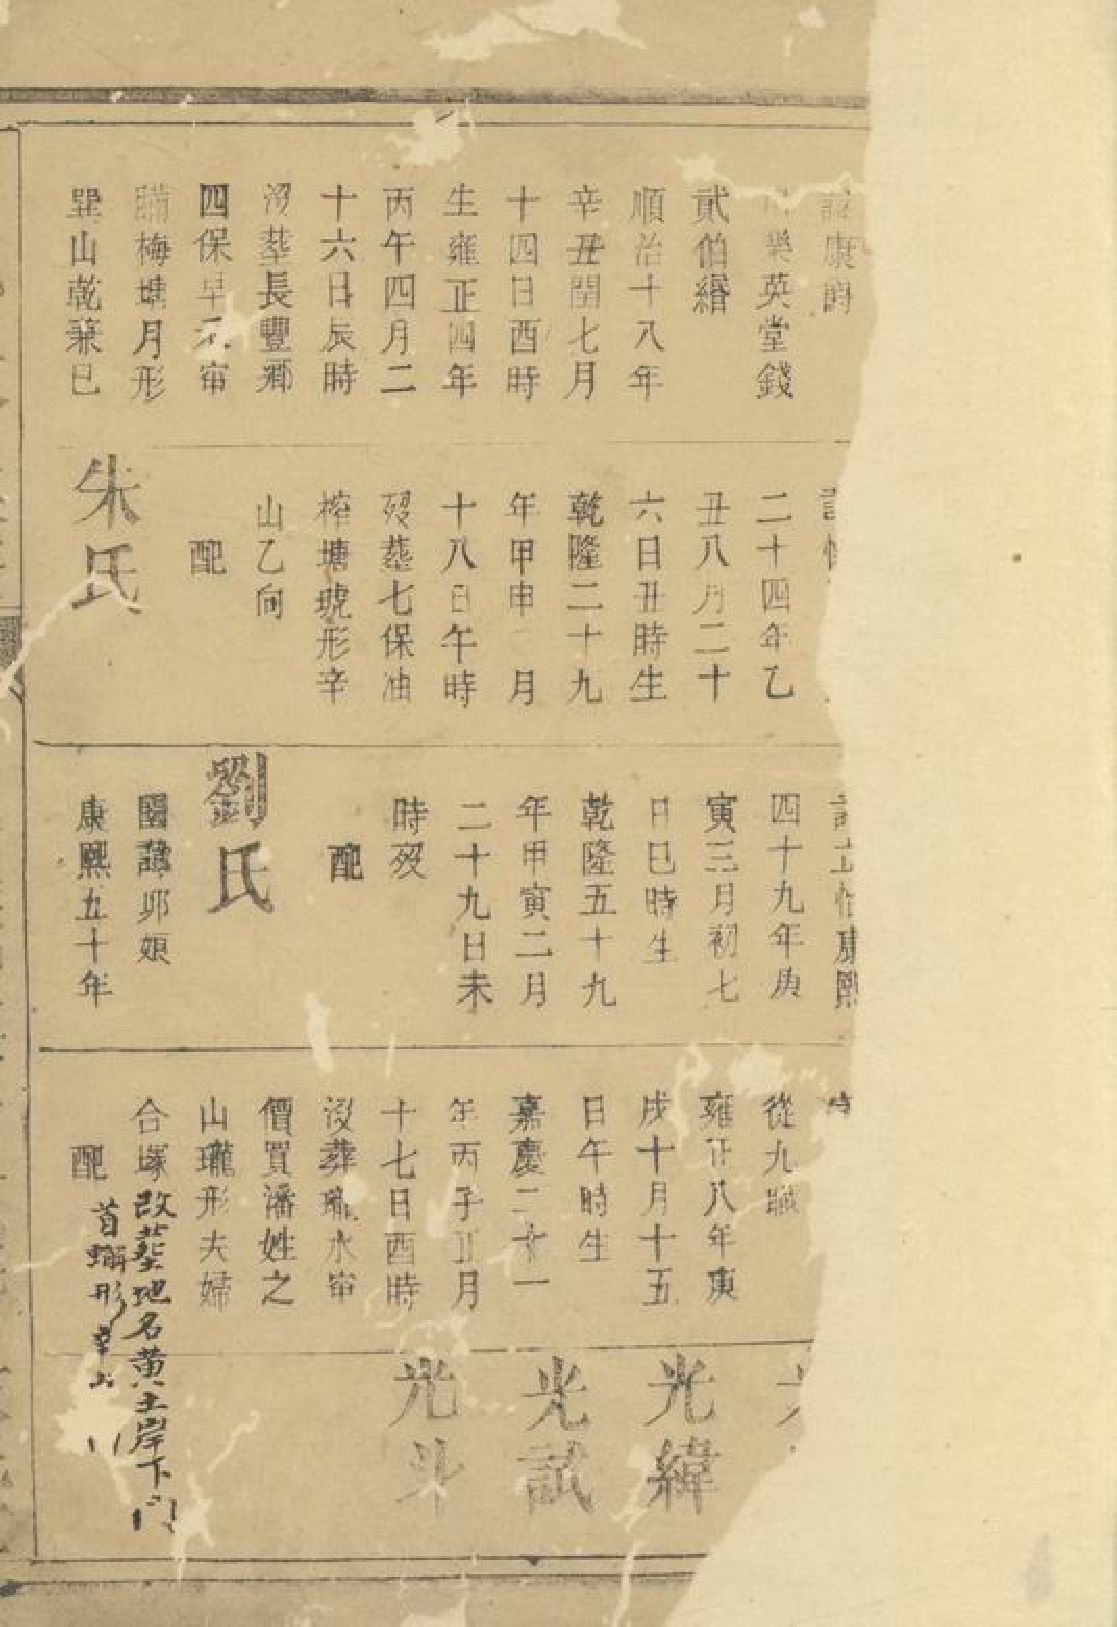 康爵
樂英堂錢
貳伯緡
順治十八年
辛丑閏七月
十四日酉時
生雍正四年
丙午四月二
十六日辰時
沒塟長豐鄉
四保早禾甯
梅塘月形
巽山乾兼巳
二十四年乙
丑八月二十
六日丑時生
乾隆二十九
年甲申月
十八日午時
歿塟七保油
榨塘琥形辛
山乙向
配
朱氏
康熙
四十九年庚
寅三月初七
日巳時生
乾隆五十九
年甲寅二月
二十九日未
時歿
配
劉氏
國諱卯娘
康熙五十年
從九職
雍正八年庚
戌十月十五
日午時生
嘉慶二十一
年丙子正月
十七日酉時
沒葬水甯
價買潘姓之
山瓏形夫婦
合塚改塟地名黄土岸下
配
形辛山
光緯
光試
光斗